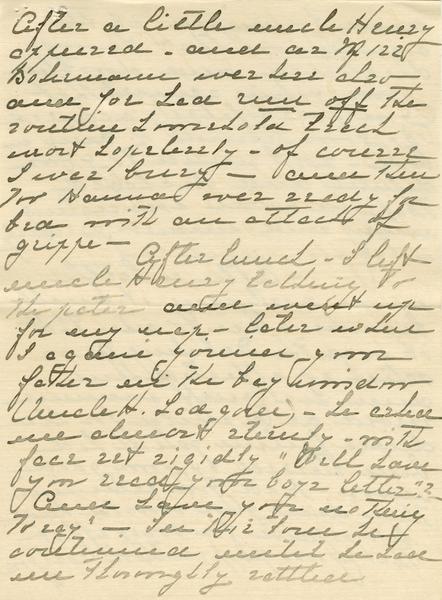 After a little uncle Henry
appeared - and as Miss
Bohrmann was here also
and you had run off the
routine household tasks
most hopelessly - of course
I was busy - and then
too Hanna was ready for
bed with an attack of
grippe -
After lunch - I left
uncle Henry talking to
the pater and went up
for my nap - later when
I again joined your
father in the bay window
Uncle H. had gone, - he asked
me almost sternly - with
face set rigidly "Well have
you read your boys letter"?
"And have you nothing
to say" - In this tone he
continued until he had
me thoroughly rattled